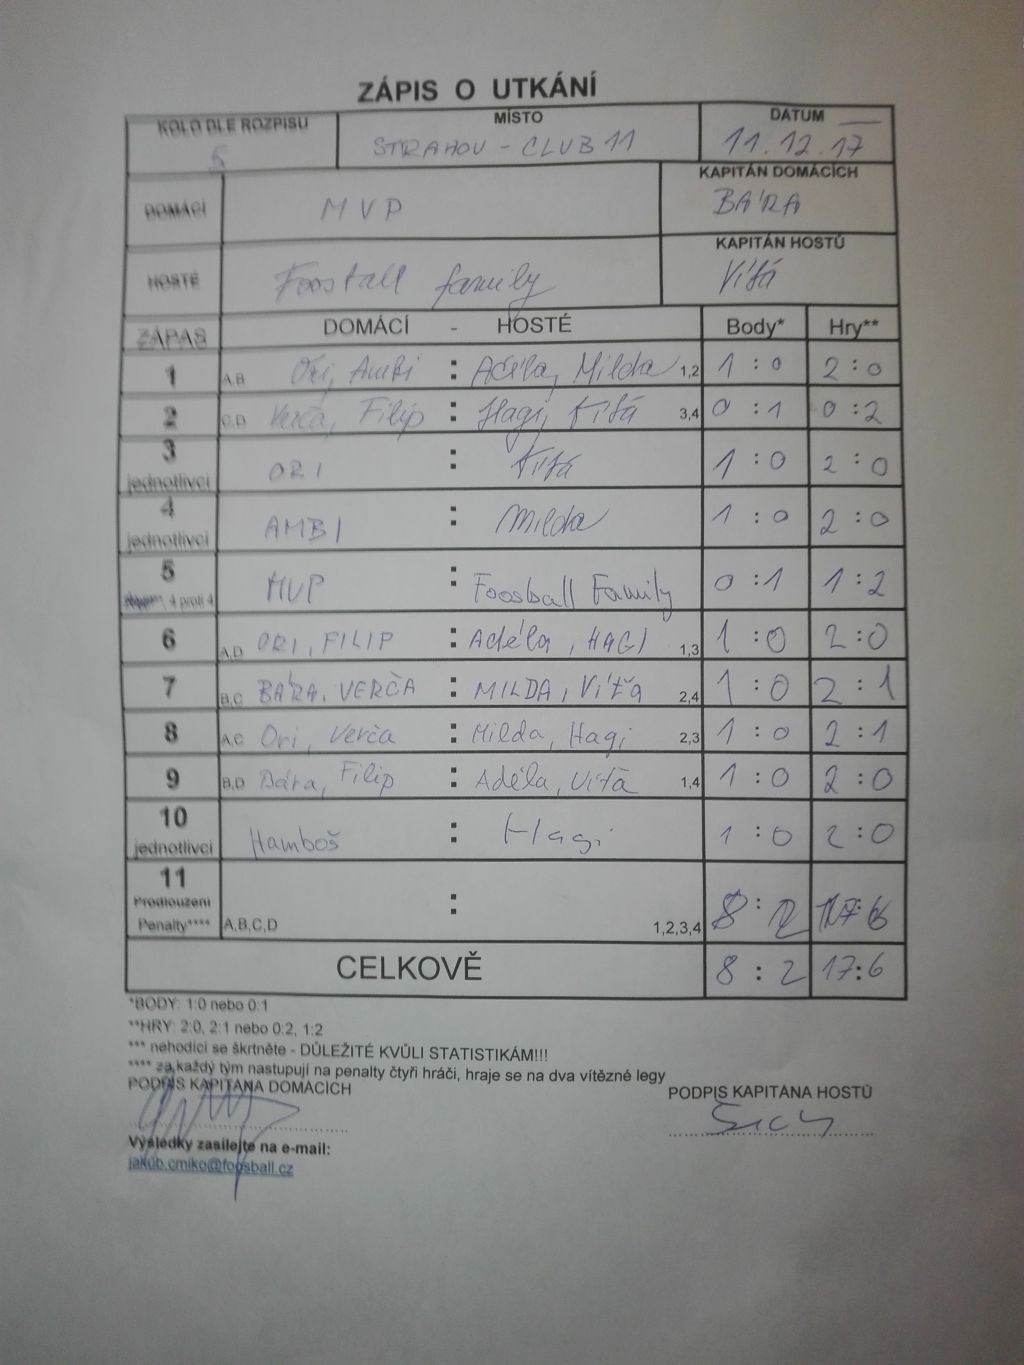 ZÁPIS O UTKÁNÍ
KOLO DLE ROZPISU MÍSTO DATUM
5 STRAHOV - CLUB 11 11.12.17
DOMÁCÍ MVP KAPITÁN DOMÁCÍCH
BÁRA
HOSTÉ Foosball family KAPITÁN HOSTŮ
Víťá
ZÁPAS DOMÁCÍ - HOSTÉ Body* Hry**
1 A,B Ori, Ambi : Adéla, Milda 1,2 1 : 0 2 : 0
2 C,D Verča, Filip : Hagi, Víťá 3,4 0 : 1 0 : 2
3 jednotlivci ORI : Víťá 1 : 0 2 : 0
4 jednotlivci AMBI : Milda 1 : 0 2 : 0
5 4 proti 4 MVP : Foosball Family 0 : 1 1 : 2
6 A,D ORI, FILIP : Adéla, HAGI 1,3 1 : 0 2 : 0
7 B,C BÁRA, VERČA : MILDA, Víťa 2,4 1 : 0 2 : 1
8 A,C Ori, Verča : Milda, Hagi 2,3 1 : 0 2 : 1
9 B,D Bára, Filip : Adéla, Víťá 1,4 1 : 0 2 : 0
10 jednotlivci Hamboš : Hagi 1 : 0 2 : 0
11 Prodloužení
Penalty**** A,B,C,D : 1,2,3,4 8 : 2 17 : 6
CELKOVĚ 8 : 2 17 : 6
*BODY: 1:0 nebo 0:1
**HRY: 2:0, 2:1 nebo 0:2, 1:2
*** nehodící se škrtněte - DŮLEŽITÉ KVŮLI STATISTIKÁM!!!
**** za každý tým nastupují na penalty čtyři hráči, hraje se na dva vítězné legy
PODPIS KAPITÁNA DOMÁCÍCH PODPIS KAPITÁNA HOSTŮ
Výsledky zasílejte na e-mail:
jakub.cmiko@foosball.cz